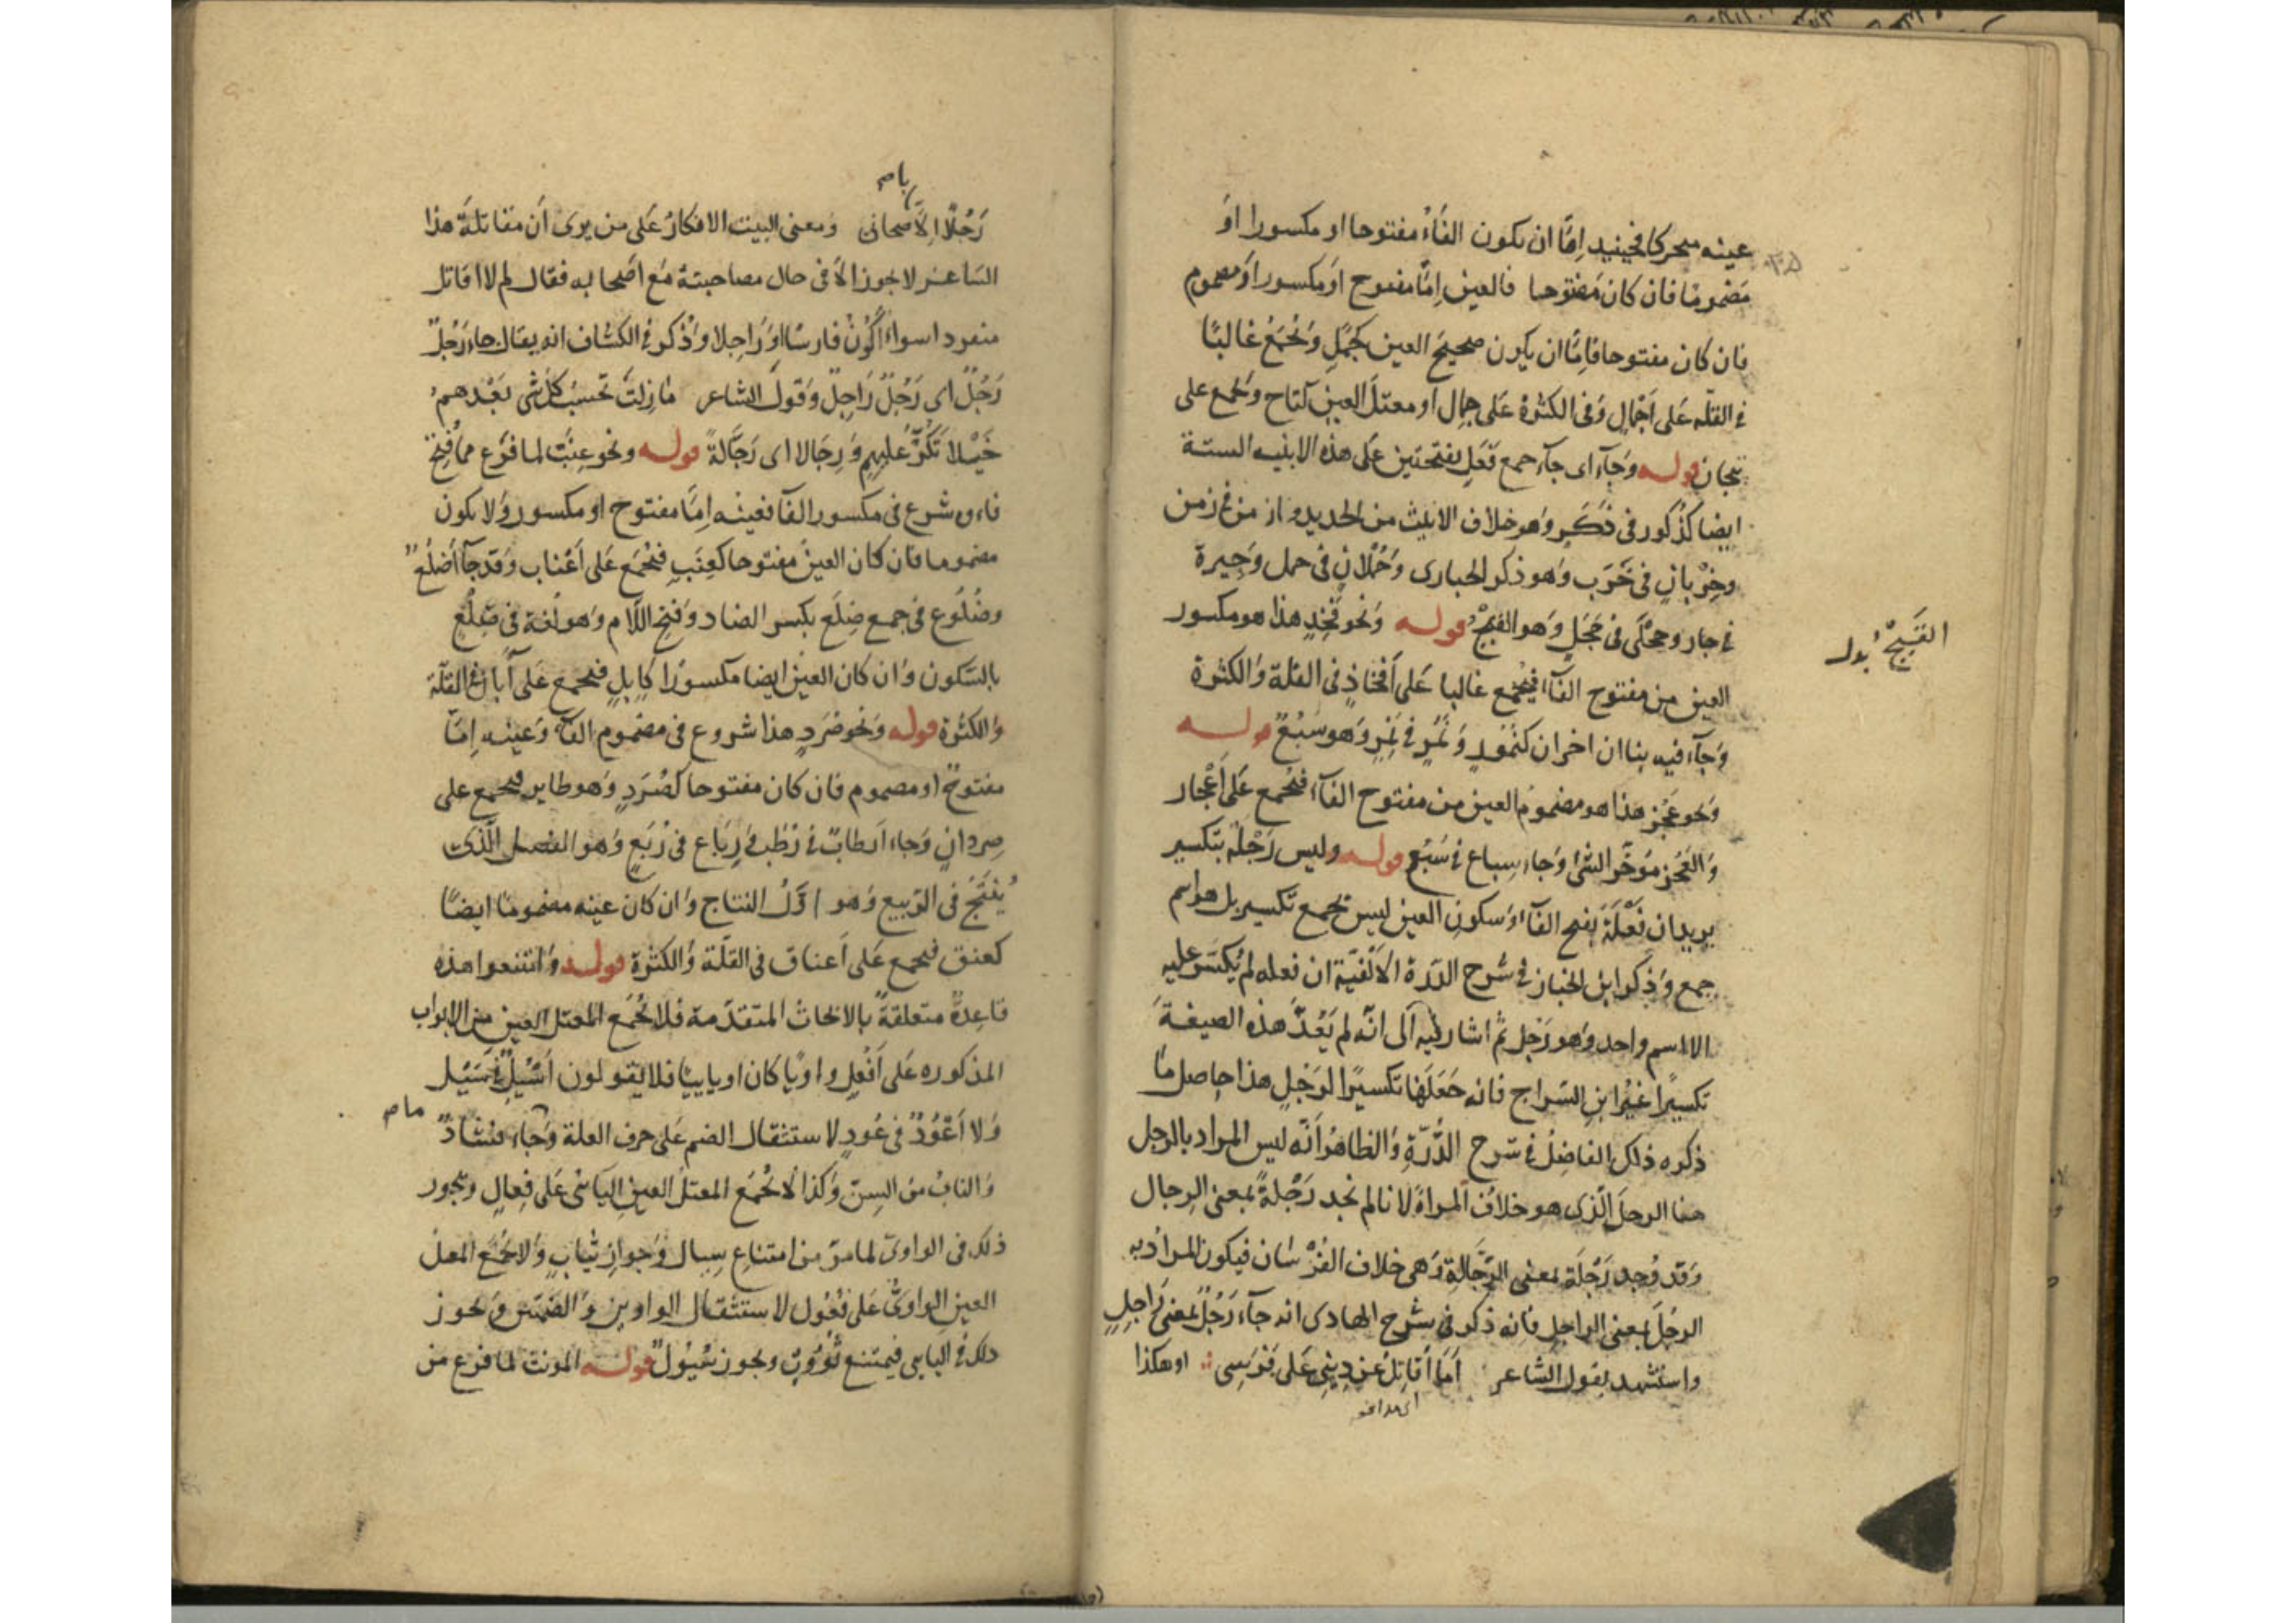 عينه متحركا فحينيذ اِمّا ان يكون الفَآءُ مفتوحا او مكسورا اوَ
مَضمومًا فان كان مَفتوحا فالعين اِمّا مفتوح اوَ مكسور اوَ مضموم
فان كان مفتوحا فاِمّا ان يكون صحيحَ العين كجَمَلٍ وَيُجْمَعُ غالبًا
فى القلّه عَلى اَجْمَالٍ وَفى الكثرة عَلى جمِالٍ او معتلَ العينِ كتاج وَيجمع على
تيجان قوله وَجَآء اى جآء جمع فَعَلٍ بفتحتين عَلى هذه الابنيه الستة
ايضا كذُكور فى ذَكَرٍ وَهو خلاف الانيث من الحديد وازمن فى زمن
وخِرْبانٍ فى خَرَب وَهو ذكر الحبارى وَحُمْلانٍ فى حمل وَجِيرة
فى جار وحجْلَى فى حَجَلٍ وَهو القَبَجُ قوله وَنحو فَخِذٍ هذا هو مكسور
القَبَجْ بدل
العين من مفتوح الفَآء فيُجْمع غالبا عَلى اَفْخاذٍ فى القلة وَالكثرة
وَجَآء فيه بناان اخران كنُمُورٍ وَ نُمُرٍ فى نَمِرٍ وَهو سَبُعٌ قوله
وَنحو عَجُز هذا هو مضمومُ العين من مفتوح الفَآء فيُجْمع عَلى اَعْجَاز
وَالعَجُز مؤخّر الشئ وَجاء سِباع فى سَبُعٍ قوله وليس رَجْلَة بتكسير
يريد ان فَعْلَةَ بفتح الفَآء وَسكونِ العين ليس بجمع تكسير بل هو اسم
جمع وَذكر ابن الخباز فى شرح الدّرة الاَلْفيّة ان فعله لم يُكَسَّر عليه
الا اسم واحد وَهو رَجُل ثمّ اشار فيه الى انّه لم يَعُدَّ هذه الصيغةَ
تكسيرًا غيرُ ابن السّراج فانه جَعَلَهَا تكسيرًا لرَجُلٍ هذا حاصل ما
ذكره ذلك الفاضِلُ فى شرح الدُّرّةِ وَالظاهرُ اَنّه ليس المراد بالرجل
هنا الرجلَ الّذى هو خلافُ المراة لانا لم نجد رَجْلةً بمعنى الرِجال
وَقد وُجد رَجْلَة بمعنى الرَّجّالةِ وَهى خلاف الفُرْسَان فيكون المرادُ به
الرجُلَ بمعنى الراجلِ فانه ذكر فى شرح الهادى انه جآء رَجُلٌ بمعنى رَاجِلٍ
واستشهد بقول الشاعر اَمَا اُقَاتِلُ عَن دِينِى عَلى فَرَسِى او هكذا
رَجُلًا اِلاَّ بِاَصحابى وَمعنى البيت الانكارُ عَلى من يرى اَن مقاتلَةَ هذا
الشاعر لا يجوز الاّ فى حال مصاحبتهُ مَع اَصحابه فقال لم لا اقاتل
منفردا سواء اَكُونُ فارسًا اوَ رَاجلا وَذُكر فى الكشاف انه يقال جاء رَجُلٌ
رَجُلٌ اى رَجُلٌ رَاجِلٌ وَقولُ الشاعر مَا زِلتَ تحسَبُ كلَّ شئ بَعْدهمُ
خَيْلا تَكُرُّ عَليهم وَرِجَالا اى رَجَّالةً قوله ونحو عِنَبٍ لما فرَغ ممّا فُتِحَ
فاءه شرع فى مكسور الفآ فعينُه اِمّا مفتوح او مكسور وَلا يكون
مضموما فان كان العينُ مفتوحا كعِنَبٍ فيُجْمَع عَلى اَعْناب وَقد جَآ اَضلُعٌ
وضُلُوع فى جمع ضِلَع بكسر الضاد وَفتح اللّام وَهو لُغة فى ضِلْعٍ
بالسّكون وَان كان العينُ ايضا مكسورًا كاِبِلٍ فيجمع عَلى آبالٍ فى القلّة
وَالكثرة قوله وَنحو صُرَدٍ هذا شروع فى مضموم الفآء وَعينُه اِمّا
مفتوحٌ او مضموم فان كان مفتوحا كصُرَدٍ وَهو طاير فيجمع على
صِردانٍ وَجاء اَرطابٌ فى رُطَب وَرِبَاع فى رُبَعٍ وَهو الفصيل الّذى
يُنتَجُ فى الرّبيع وَهو اوّلُ النتاج وَان كان عينه مضمومًا ايضًا
كعنق فيجمع عَلى اَعناق فى القلّة وَالكثرة قوله وَامتنعوا هذه
قاعِدةٌ متعلقةٌ بالابحاث المتقدّمة فلا يُجْمَع المعتلّ العين من الابواب
المذكوره عَلى اَفعُلٍ واويًا كان او يايِيا فلا يقولون اَسْيُلٌ فى سَيْل
وَلا اَعْوُدٌ فى عُودٍ لاستثقال الضم عَلى حرف العلة وَجآء شاذّ
وَالنابُ من السِنّ وَكذا لا يُجْمَع المعتلُّ العينِ اليآئى عَلى فِعالٍ ويجوز
ذلك فى الواوىّ لما مرّ من امتناعِ سِيال وَجوازِ ثيابٍ وَلا يُجْمَع المعتلُ
العينِ الواوىُّ عَلى فُعُول لاستثقال الواوين وَالضمّتين وَيجوز
ذلك فى اليايى فيمتنع ثُوُوبٌ ويجوز سُيُولٌ قوله المونث لما فرغ من